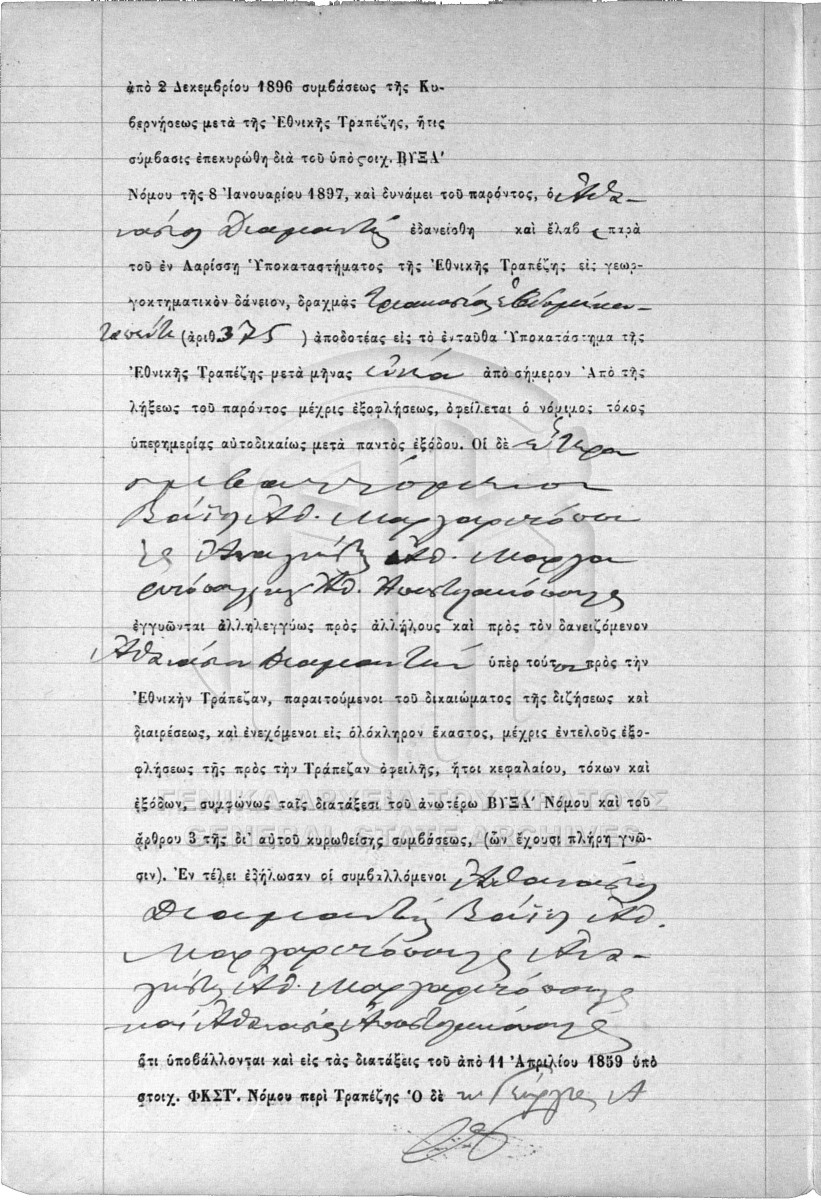 ἀπὸ 2 Δεκεμβρίου 1896 συμβάσεως τῆς Κυ-
βερνήσεως μετὰ τῆς Ἐθνικῆς Τραπέζης, ἥτις
σύμβασις ἐπεκυρώθη διὰ τοῦ ὑπὸ ϛοιχ. ΒΥΞΑ'
Νόμου τῆς 8 Ἰανουαρίου 1897, καὶ δυνάμει τοῦ παρόντος, ὁ Ἀθα-
νάσιος Διαμαντῆς ἐδανείσθη καὶ ἔλαβε παρὰ
τοῦ ἐν Λαρίσσῃ Ὑποκαταστήματος τῆς Ἐθνικῆς Τραπέζης εἰς γεωρ-
γοκτηματικὸν δάνειον, δραχμὰς τριακοσίας ἑβδομήκον-
τα πέντε (ἀριθ. 375) ἀποδοτέας εἰς τὸ ἐνταῦθα Ὑποκατάστημα τῆς
Ἐθνικῆς Τραπέζης μετὰ μῆνας ἐννέα ἀπὸ σήμερον Ἀπὸ τῆς
λήξεως τοῦ παρόντος μέχρις ἐξοφλήσεως, ὀφείλεται ὁ νόμιμος τόκος
ὑπερημερίας αὐτοδικαίως μετὰ παντὸς ἐξόδου. Οἱ δὲ ἕτεροι
συμβαλλόμενοι
Ἀθ. Μαργαριτόπου
λος Ἀναγνώστης Ἀθ. Μαργα
ριτόπουλος καὶ Ἀθ. Ἀποστολακόπουλος
ἐγγυῶνται ἀλληλεγγύως πρὸς ἀλλήλους καὶ πρὸς τὸν δανειζόμενον
Ἀθανάσιον Διαμαντήν ὑπὲρ τούτου πρὸς τὴν
Ἐθνικὴν Τράπεζαν, παραιτούμενοι τοῦ δικαιώματος τῆς διζήσεως καὶ
διαιρέσεως, καὶ ἐνεχόμενοι εἰς ὁλόκληρον ἕκαστος, μέχρις ἐντελοῦς ἐξο-
φλήσεως τῆς πρὸς τὴν Τράπεζαν ὀφειλῆς, ἤτοι κεφαλαίου, τόκων καὶ
ἐξόδων, συμφώνως ταῖς διατάξεσι τοῦ ἀνωτέρω ΒΥΞΑ' Νόμου καὶ τοῦ
ΓΕΝΙΚΑ ΑΡΧΕΙΑ ΤΟΥ ΚΡΑΤΟΥΣ
GENERAL STATE ARCHIVES
ἄρθρου 3 τῆς δι' αὐτοῦ κυρωθείσης συμβάσεως, (ὧν ἔχουσι πλήρη γνῶ-
σιν). Ἐν τέλει ἐδήλωσαν οἱ συμβαλλόμενοι Ἀθανάσιος
Διαμαντῆς Ἀθ.
Μαργαριτόπουλος Ἀνα-
γνώστης Ἀθ. Μαργαριτόπουλος
καὶ Ἀθανάσιος Ἀποστολακόπουλος
ὅτι ὑποβάλλονται καὶ εἰς τὰς διατάξεις τοῦ ἀπὸ 11 Ἀπριλίου 1859 ὑπὸ
στοιχ. ΦΚΣΤ'. Νόμου περὶ Τραπέζης Ὁ δὲ κ. Γεώργιος Α